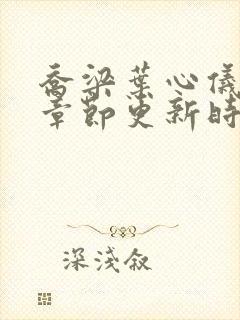 乔梁葉心儀
章節更新時
深淺叙